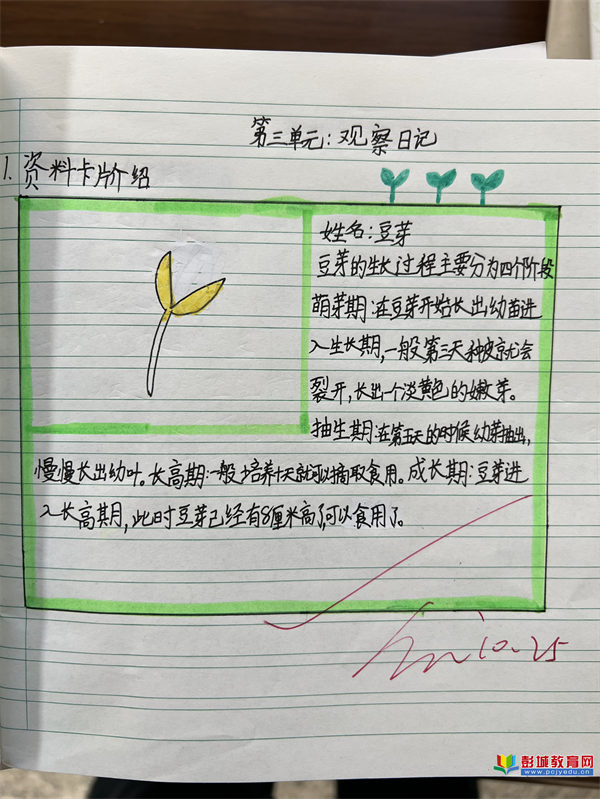 第三单元:观察日记
1.资料卡片介绍
姓名:豆芽
豆芽的生长过程主要分为四个阶段
萌芽期:在豆芽开始长出幼苗进
入生长期,一般第三天种皮就会
裂开,长出一个淡黄色的嫩芽。
抽生期:在第五天的时候幼芽抽出,
慢慢长出幼叶。长高期:一般培养十天就可以摘取食用。成长期:豆芽进
入长高期月,此时豆芽已经有8厘米高了,可以食用了。
10.25
彭城教育网
www.pcjyedu.cn